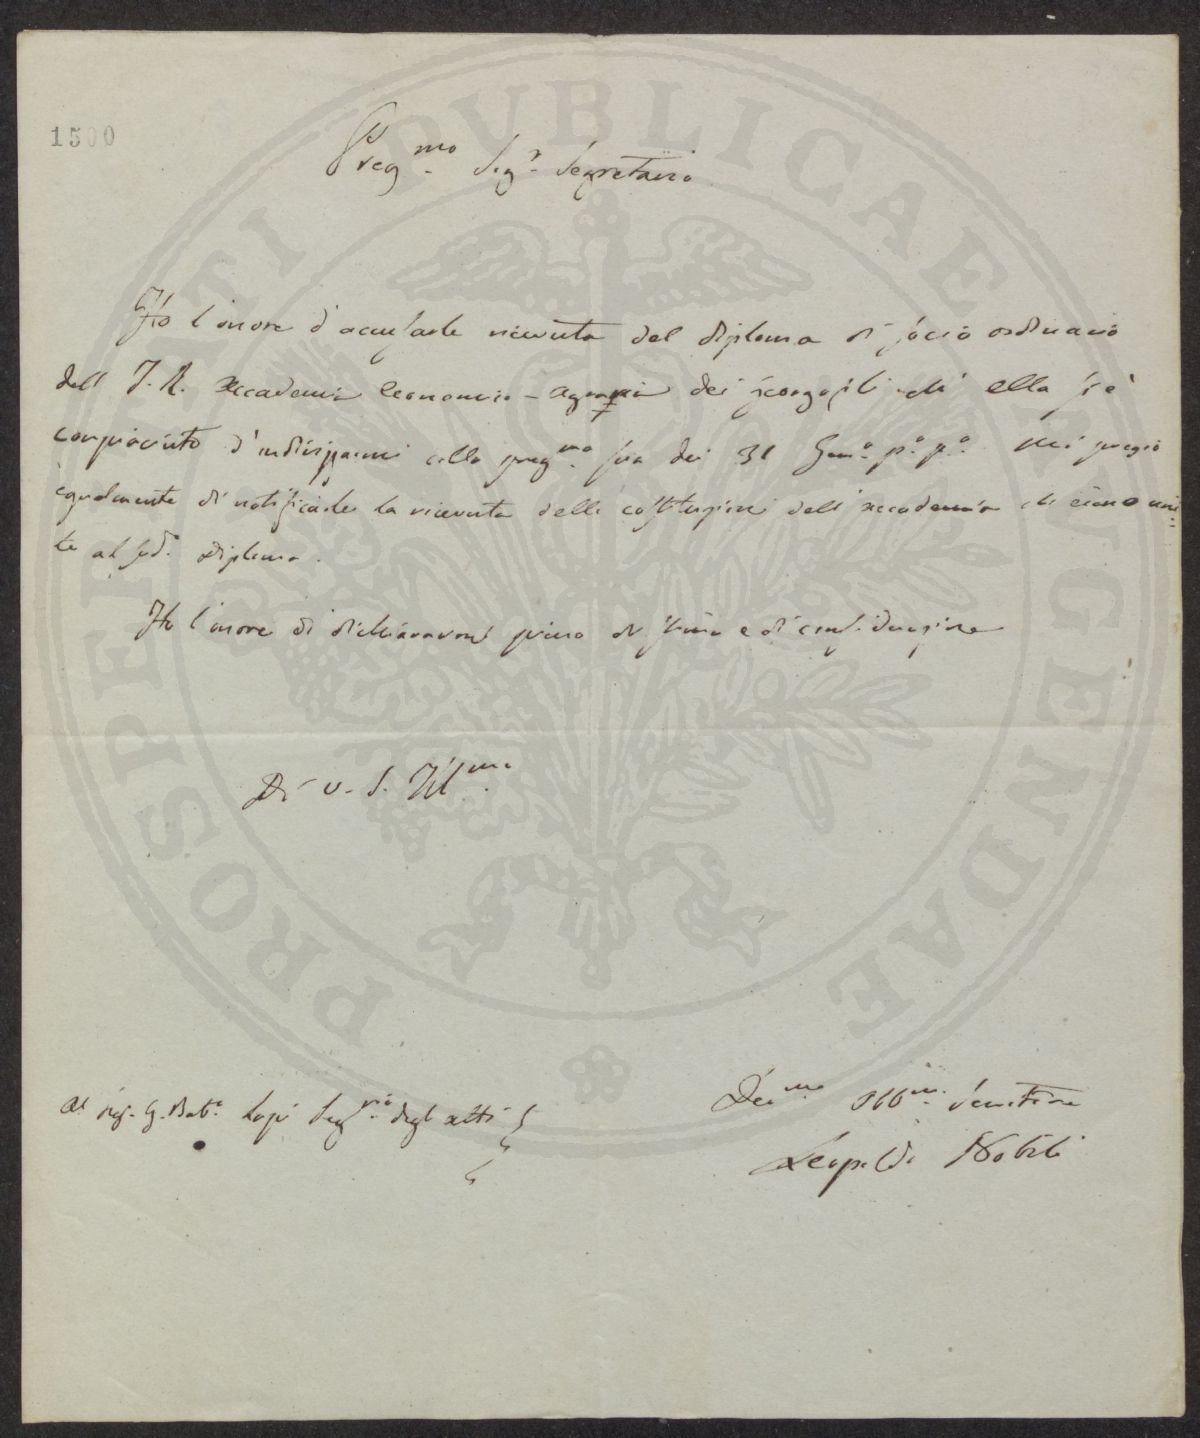 1500
Preg.mo Sig.r Segretario
Ho l'onore d'accusarle ricevuta del diploma di socio ordinario
dell' I. R. Accademia Economico-agraria dei georgofili che ella si è
compiaciuto d'indirizzarmi colla preg.ma sua dei 31 Gen.o p.o p.o Mi pregio
egualmente di notificarle la ricevuta delle costituzioni dell'accademia che erano uni-
te al sud.o diploma.
Ho l'onore di dichiararmi pieno di stima e di considerazione
Di V. S. Ill.ma
Al Sig. G. Bat.a Lapi Seg.rio degli atti
Dev.mo Obb.mo Servitore
Leopoldo Nobili
PROSPERITATI PUBLICAE AUGENDAE